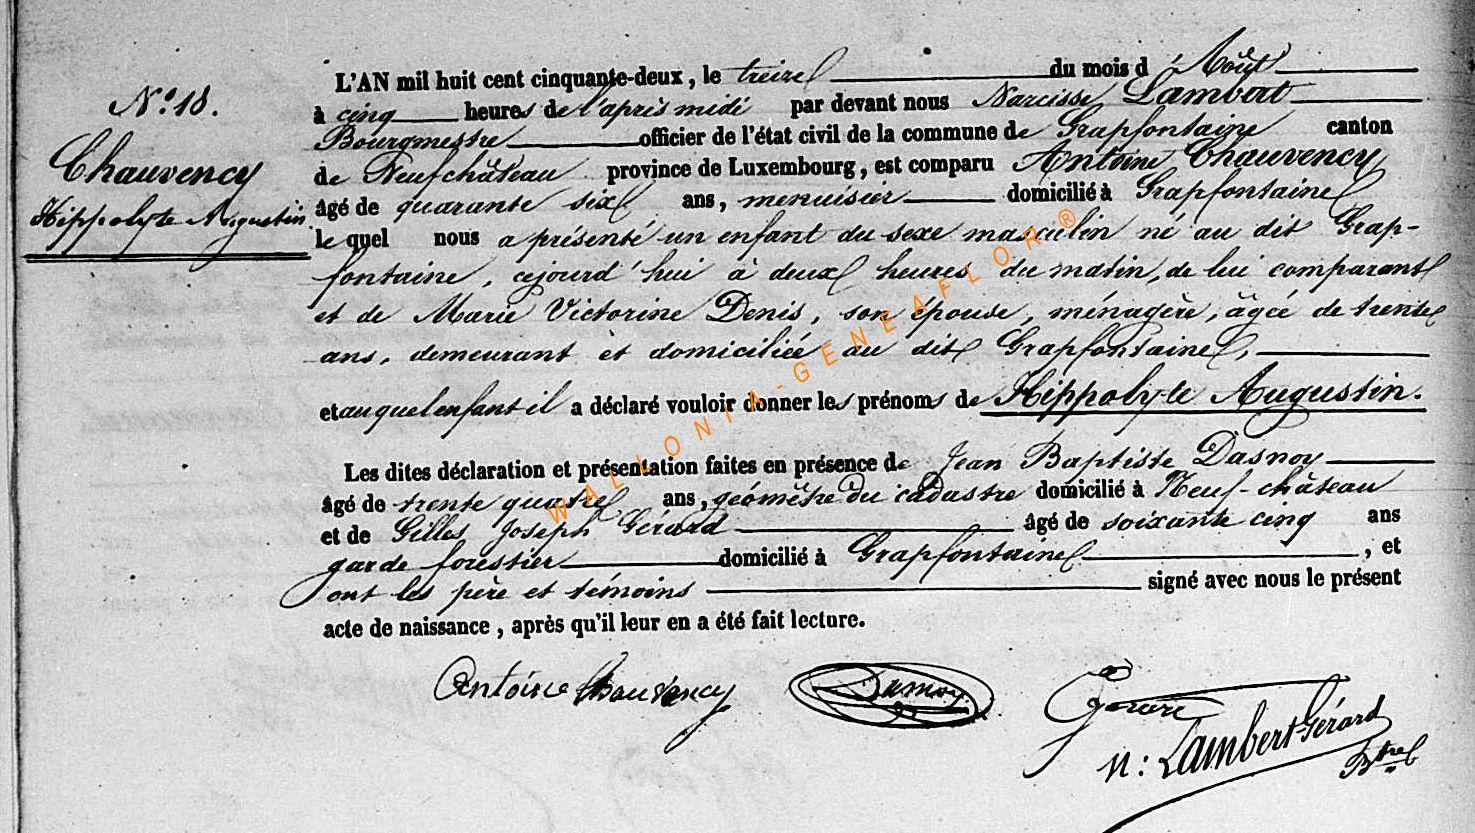 N.° 18.
Chauvency
Hippolyte Augustin
L'AN mil huit cent cinquante-deux, le treize du mois d'Août
à cinq heures de l'après midi par devant nous Narcisse Lambert
Bourgmestre officier de l'état civil de la commune de Grapfontaine canton
de Neufchâteau province de Luxembourg, est comparu Antoine Chauvency
âgé de quarante six ans, menuisier domicilié à Grapfontaine
le quel nous a présenté un enfant du sexe masculin né au dit Grap-
fontaine, cejourd'hui à deux heures du matin, de lui comparant
et de Marie Victorine Denis, son épouse, ménagère, âgée de trente
ans, demeurant et domiciliée au dit Grapfontaine,
et auquel enfant il a déclaré vouloir donner les prénoms de Hippolyte Augustin.
Les dites déclaration et présentation faites en présence de Jean Baptiste Dasnoy
âgé de trente quatre ans, géomètre du cadastre domicilié à Neuf-château
et de Gilles Joseph Gérard âgé de soixante cinq ans
garde forestier domicilié à Grapfontaine, et
ont les père et témoins signé avec nous le présent
acte de naissance, après qu'il leur en a été fait lecture.
Antoine Chauvency Dasnoy Gerard
N: Lambert-Gérard
Btre
WALLONIA-GENEAFLOR®